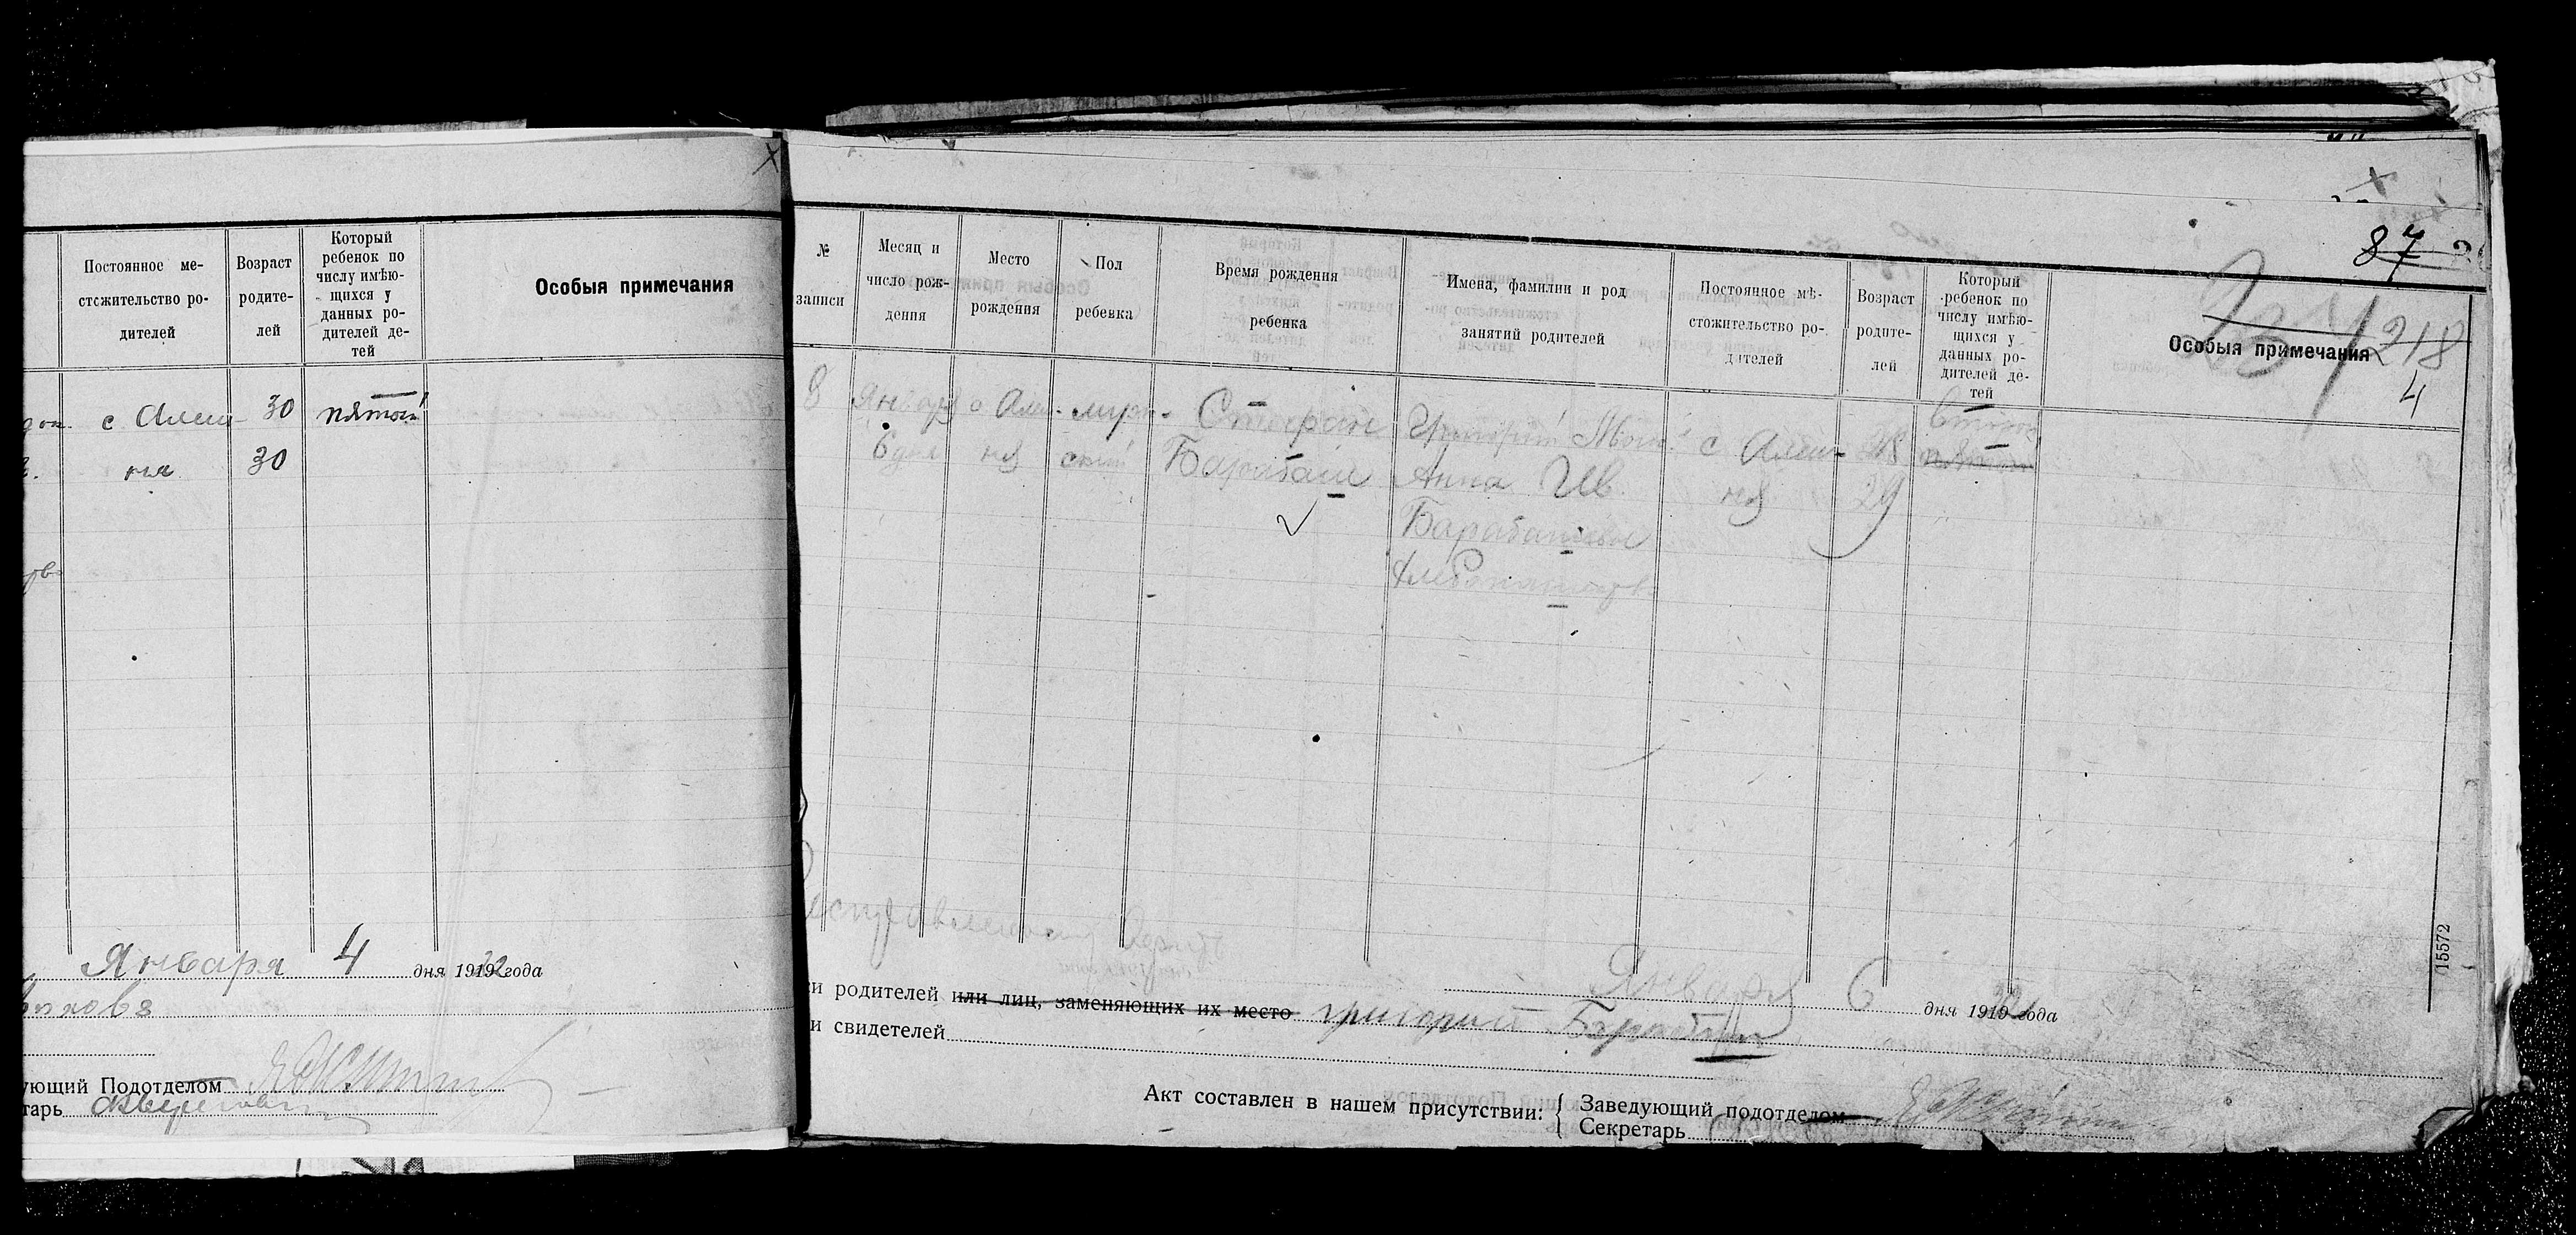 Постоянное ме-
стожительство ро-
дителей
Возраст
родите-
лей
Который
ребенок по
числу имѣю-
щихся у
данных ро-
дителей де-
тей
Особыя примечания
с Алеш-
ня
30
30
пятый
Января 4 дня 1919 22 года
ующий Подотделом
тарь
87
218
4
№
записи
Месяц и
число рож-
дения
Место
рождения
Пол
ребенка
Время рождения
ребенка
Имена, фамилии и род
занятий родителей
Постоянное мѣ-
стожительство ро-
дителей
Возраст
родите-
лей
Который
ребенок по
числу имѣю-
щихся у
данных ро-
дителей де-
тей
Особыя примечания
8
Январ
6 дня
с Алеш-
ня
мущ-
ской
Стефан
Барабаш
Григорий
Анна Ив.
Барабашевы
Хлебопашцы
с Алеш-
ня
28
29
второй
пятый
15572
Января 6 дня 1919 года
и родителей или лиц, заменяющих их место Григорий Барабаш
и свидетелей
Акт составлен в нашем присутствии:
Заведующий подотделом
Секретарь